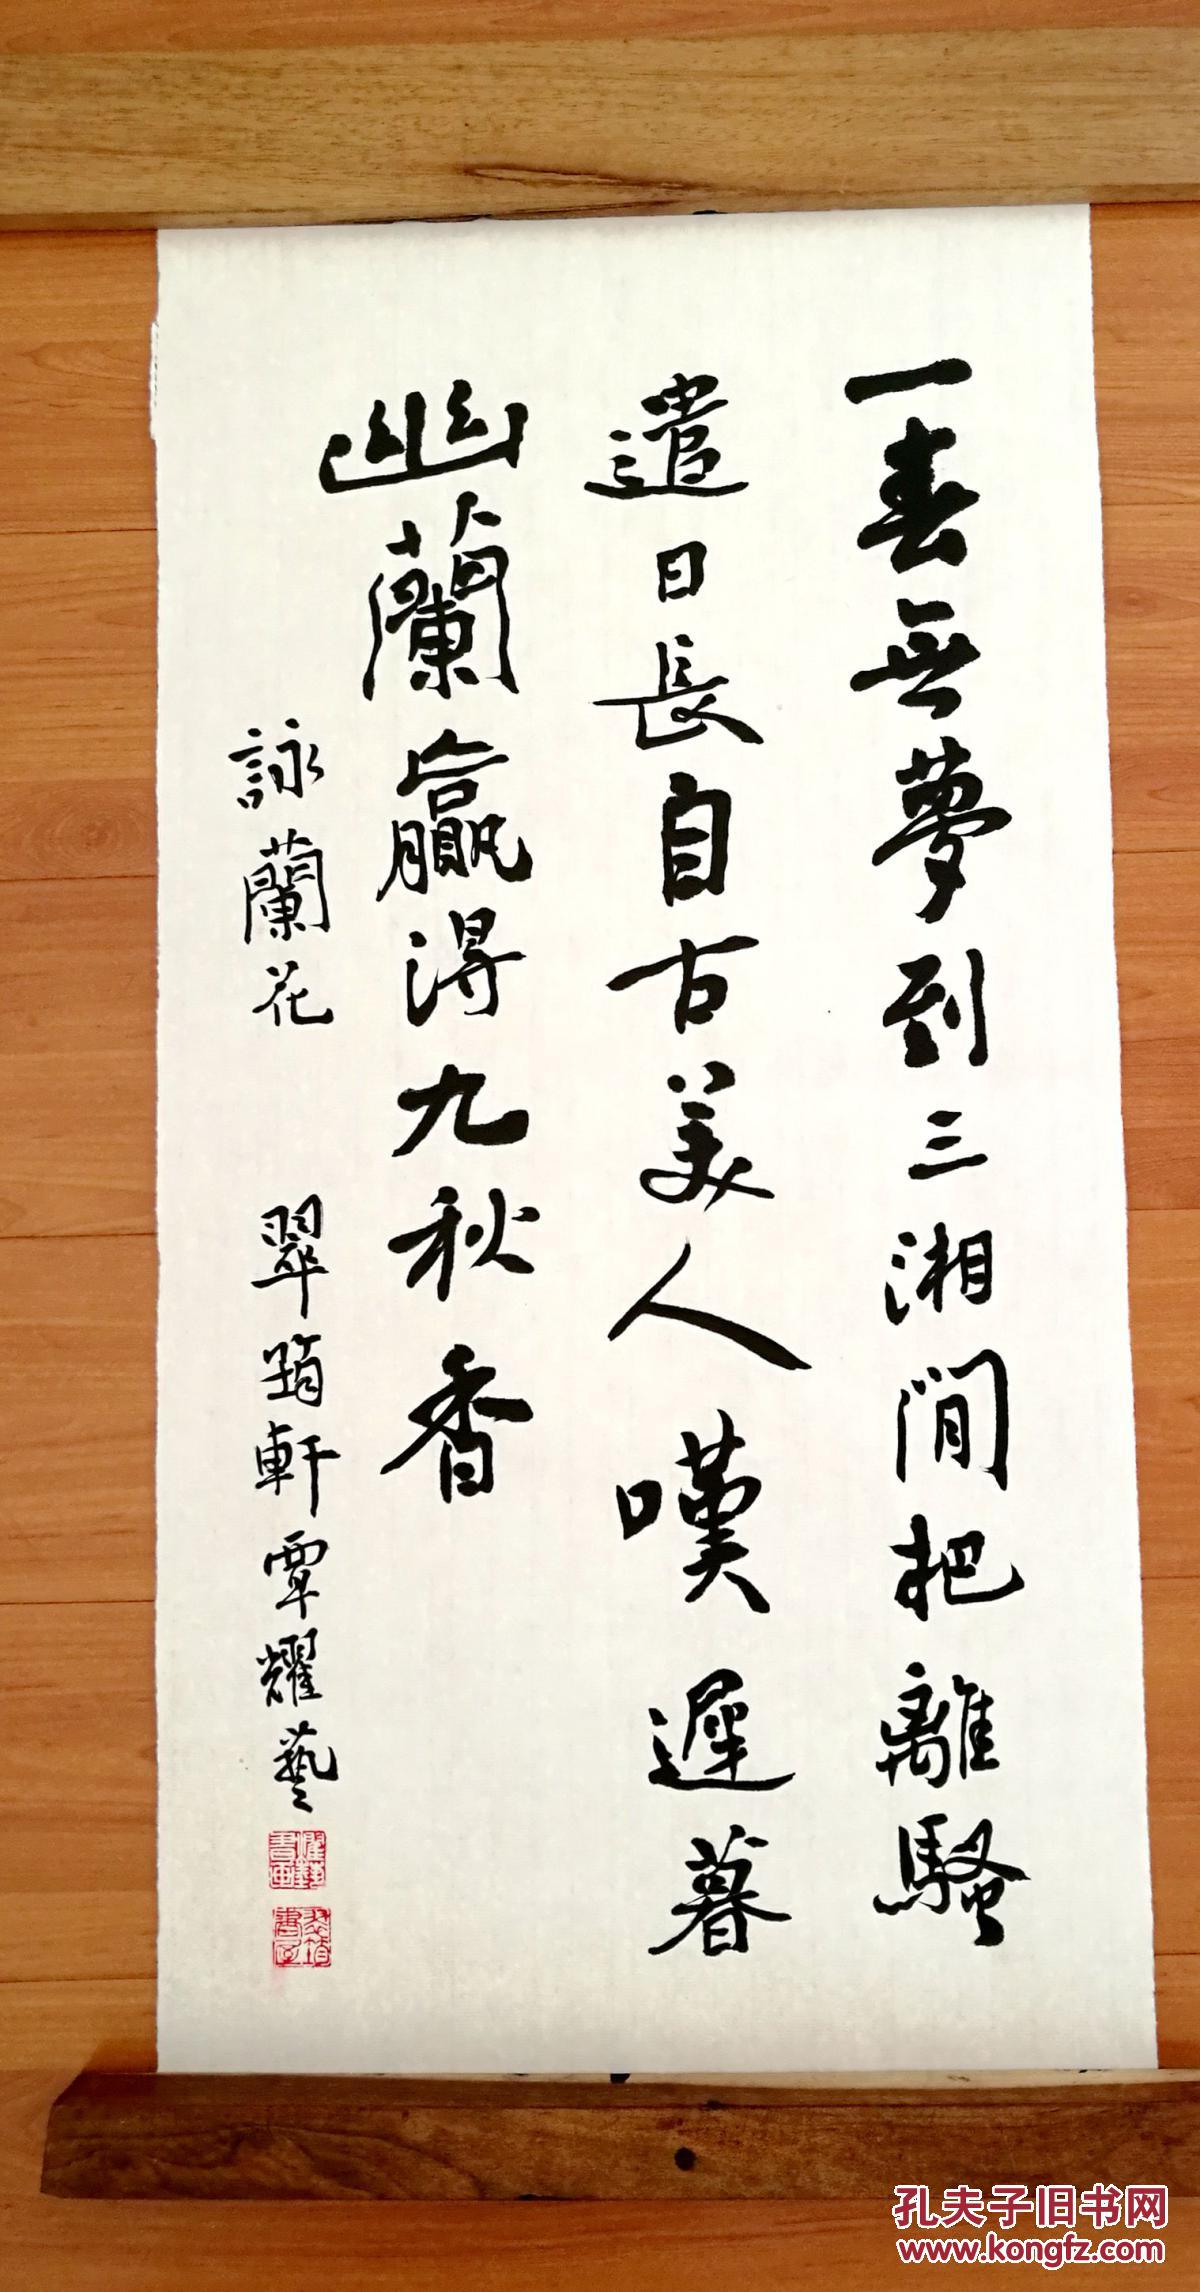 一春無夢到三湘閒把離騷
遣日長自古美人嘆遲暮
幽蘭贏得九秋香
詠蘭花 翠琦軒覃耀藝
孔夫子旧书网
www.kongfz.com